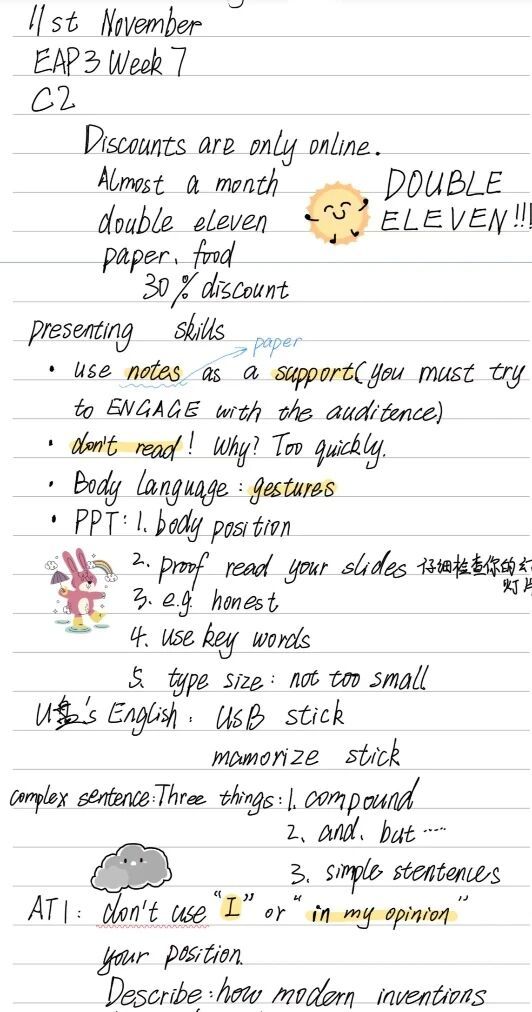 11st November
EAP3 Week 7
C2
Discounts are only online.
Almost a month
double eleven
paper、food
30% discount
DOUBLE
ELEVEN!!!
presenting skills
paper
• use notes as a support (you must try
to ENGAGE with the auditence)
• don't read! Why? Too quickly.
• Body Language: gestures
• PPT: 1. body position
2. proof read your slides 仔细检查你的幻
灯片
3. e.g. honest
4. use key words
5. type size: not too small
U盘's English: USB stick
mamorize stick
complex sentence: Three things: 1. compound
2、and、but ·····
3. simple stentences
AT1: don't use "I" or "in my opinion"
your position.
Describe: how modern inventions